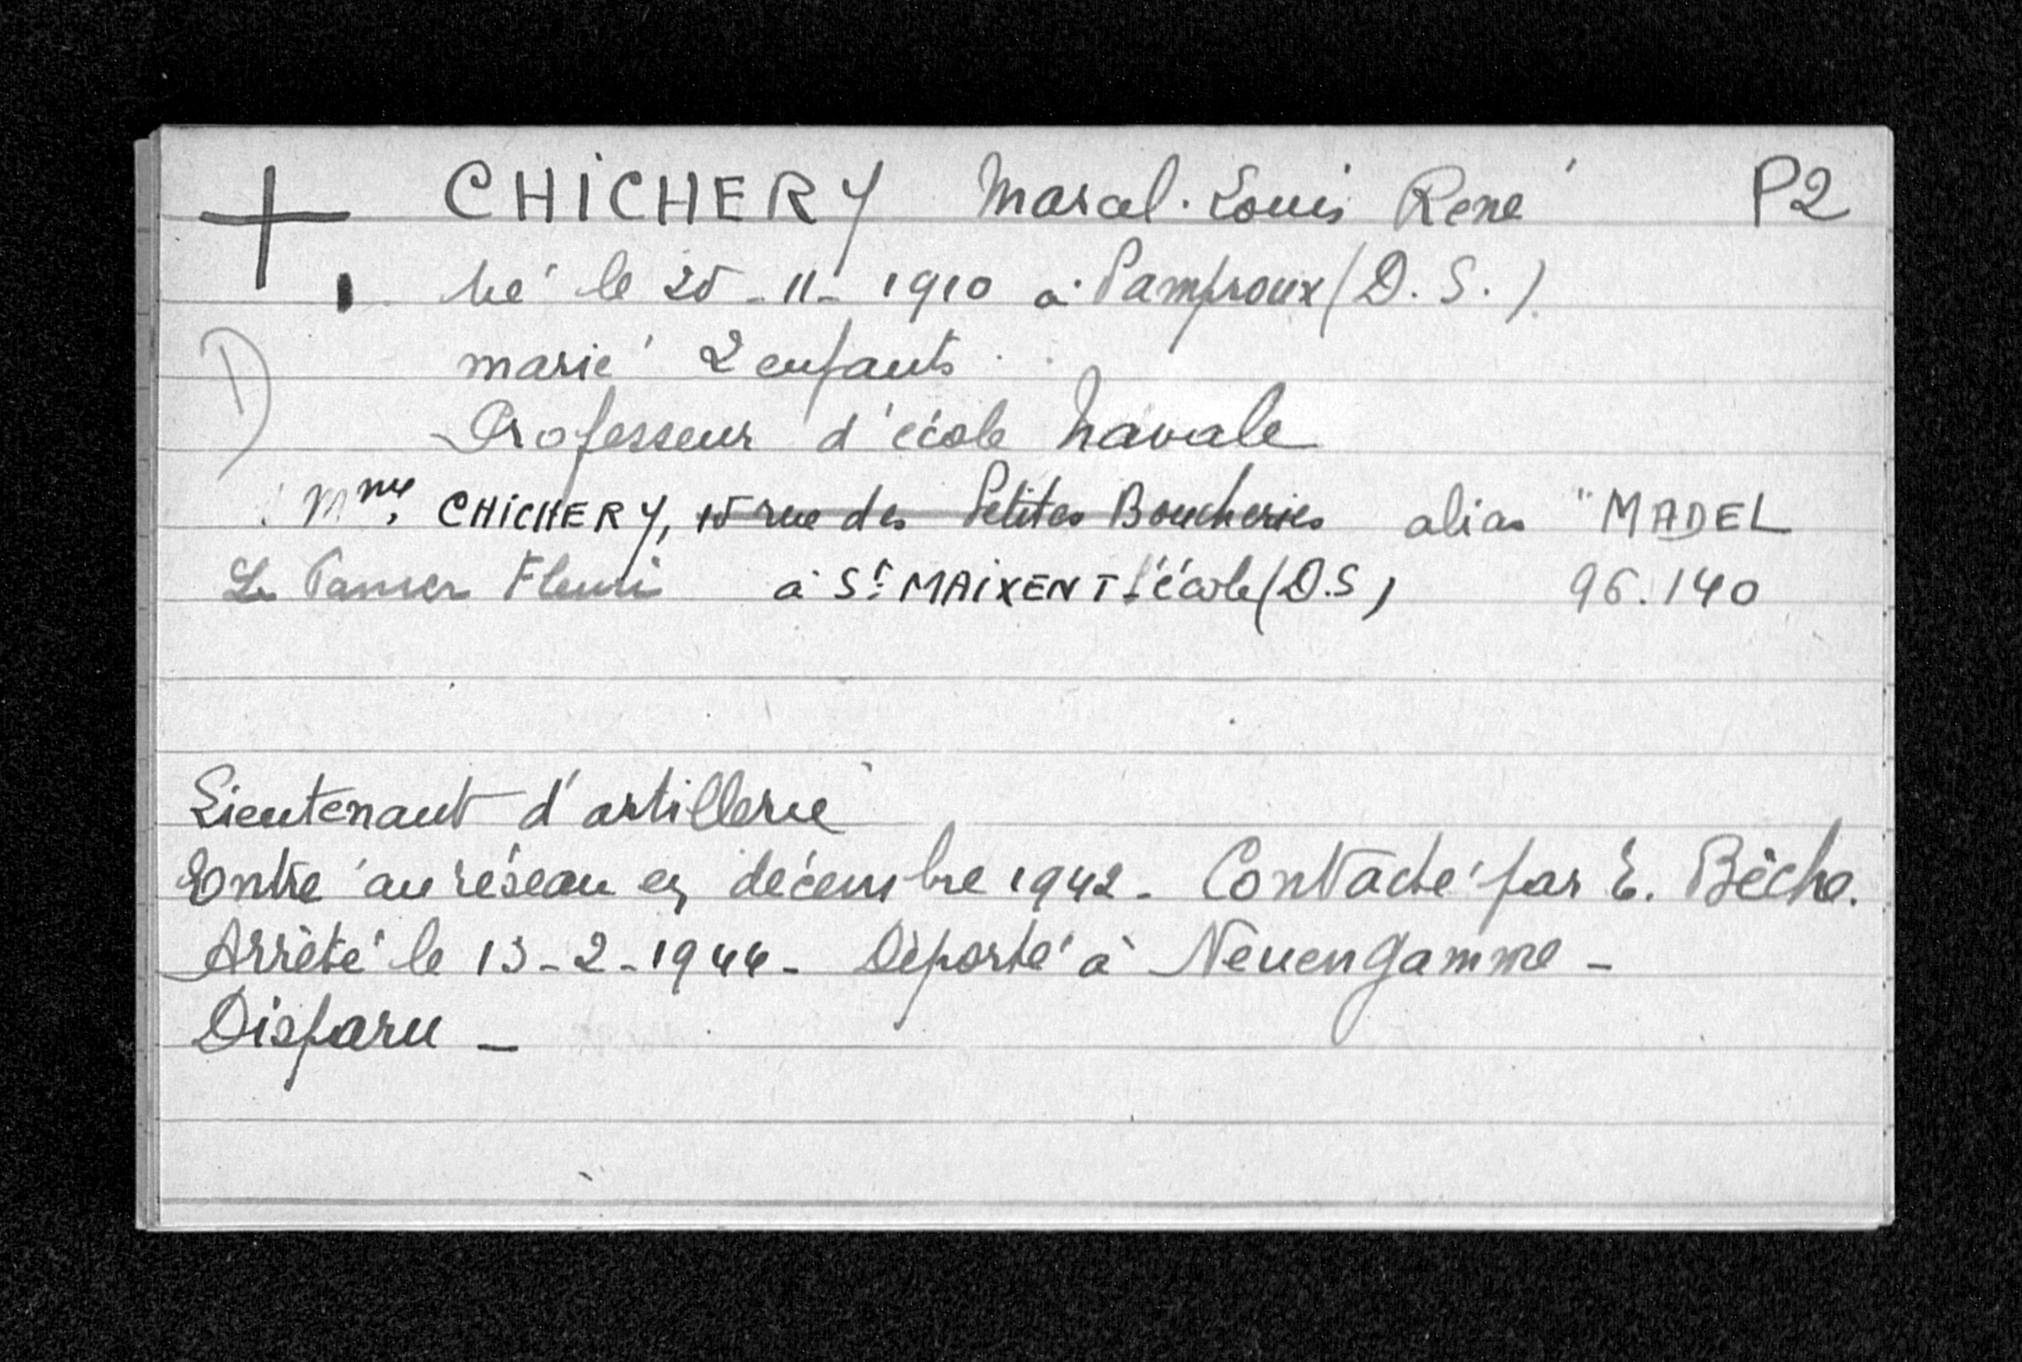 + CHICHERY Marcel. Louis René P2
né le 25-11-1910 à Pamproux (D.S.)
D) marié 2 enfants
Professeur d'école Navale
Mme, CHICHERY, 15 rue des Petites Boucheries alias "MADEL
Le Panier Fleuri à St MAIXENT l'école (D.S) 96.140
Lieutenant d'artillerie
Entré au réseau en décembre 1942 - Contacté par E. Bèche.
Arrêté le 13-2-1944 - Déporté à Neuengamme -
Disparu -